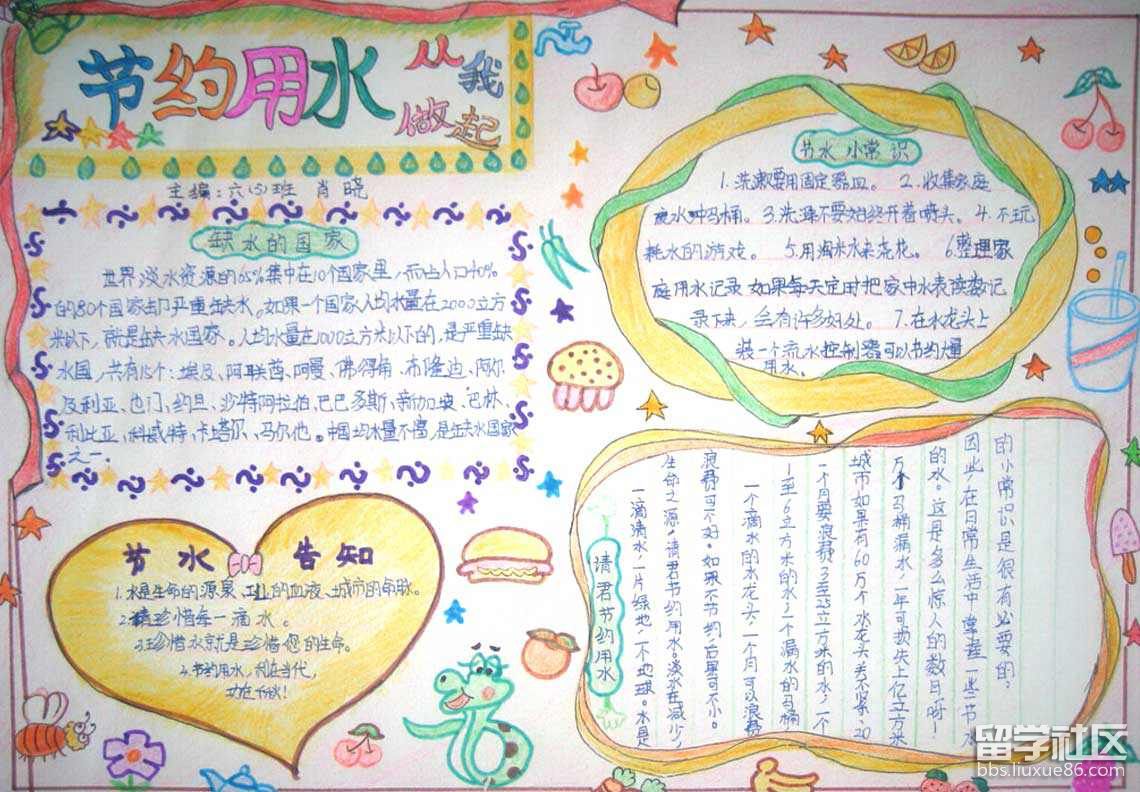 节约用水
从我
做起
主编：六(4)班 肖晓
缺水的国家
世界淡水资源的65%集中在10个国家里，而占人口40%
的80个国家却严重缺水。如果一个国家人均水量在2000立方
米以下，就是缺水国家。人均水量在1000立方米以下的，是严重缺
水国，共有15个：埃及、阿联酋、阿曼、佛得角、布隆迪、阿尔
及利亚、也门、约旦、沙特阿拉伯、巴巴多斯、新加坡、巴林、
利比亚、科威特、卡塔尔、马尔他。中国均水量不富，是缺水国家
之一。
节水告知
1.水是生命的源泉、工业的血液、城市的命脉。
2.请珍惜每一滴水。
3.珍惜水就是珍惜您的生命。
4.节约用水，利在当代，
功在千秋！
节水小常识
1.洗漱要用固定器皿。 2.收集家庭
废水冲马桶。3.洗澡不要始终开着喷头。4.不玩
耗水的游戏。 5.用淘米水来浇花。 6.整理家
庭用水记录 如果每天定时把家中水表读数记
录下来，会有许多好处。 7.在水龙头上
装一个流水控制器可以节约大量
用水。
请君节约用水
一滴清水，一片绿地，一个地球。水是
生命之源，请君节约用水。淡水在减少，
浪费可不好。如果不节约，后果可不小。
一个滴水的水龙头，一个月可以浪费
1至6立方米的水，一个漏水的马桶，
一个月要浪费3至25立方米的水，一个
城市如果有60万个水龙头关不紧、20
万个马桶漏水，一年可损失上亿立方米
的水。这是多么惊人的数目呀！
因此，在日常生活中掌握一些节水
的小常识是很有必要的：
留学社区
bbs.liuxue86.com